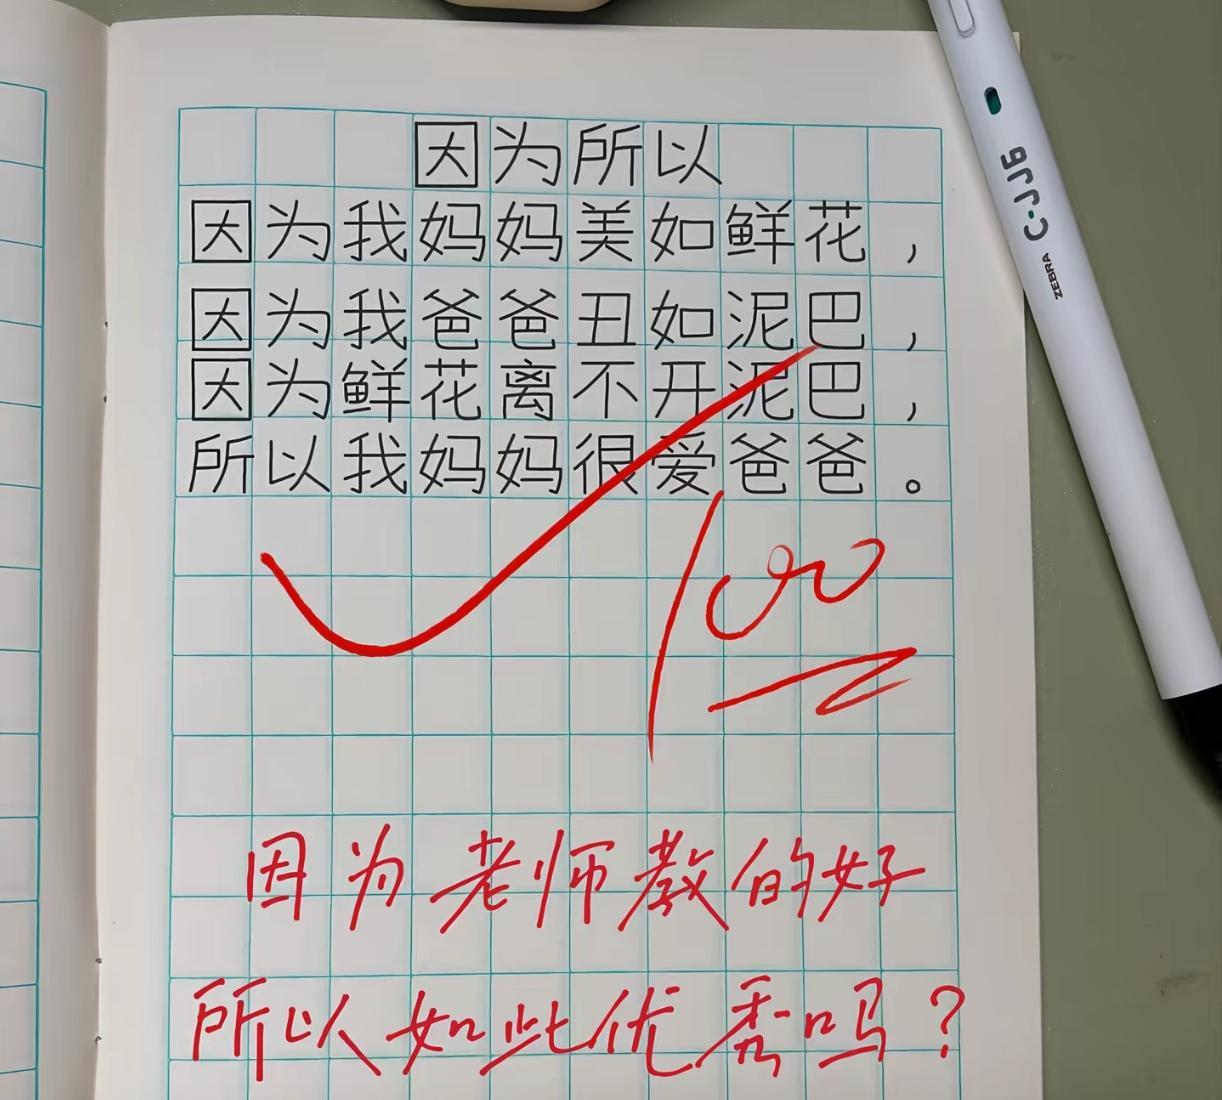 因为所以
因为我妈妈美如鲜花，
因为我爸爸丑如泥巴，
因为鲜花离不开泥巴，
所以我妈妈很爱爸爸。
100
因为老师教的好
所以如此优秀吗？
ZEBRA C-JJ6